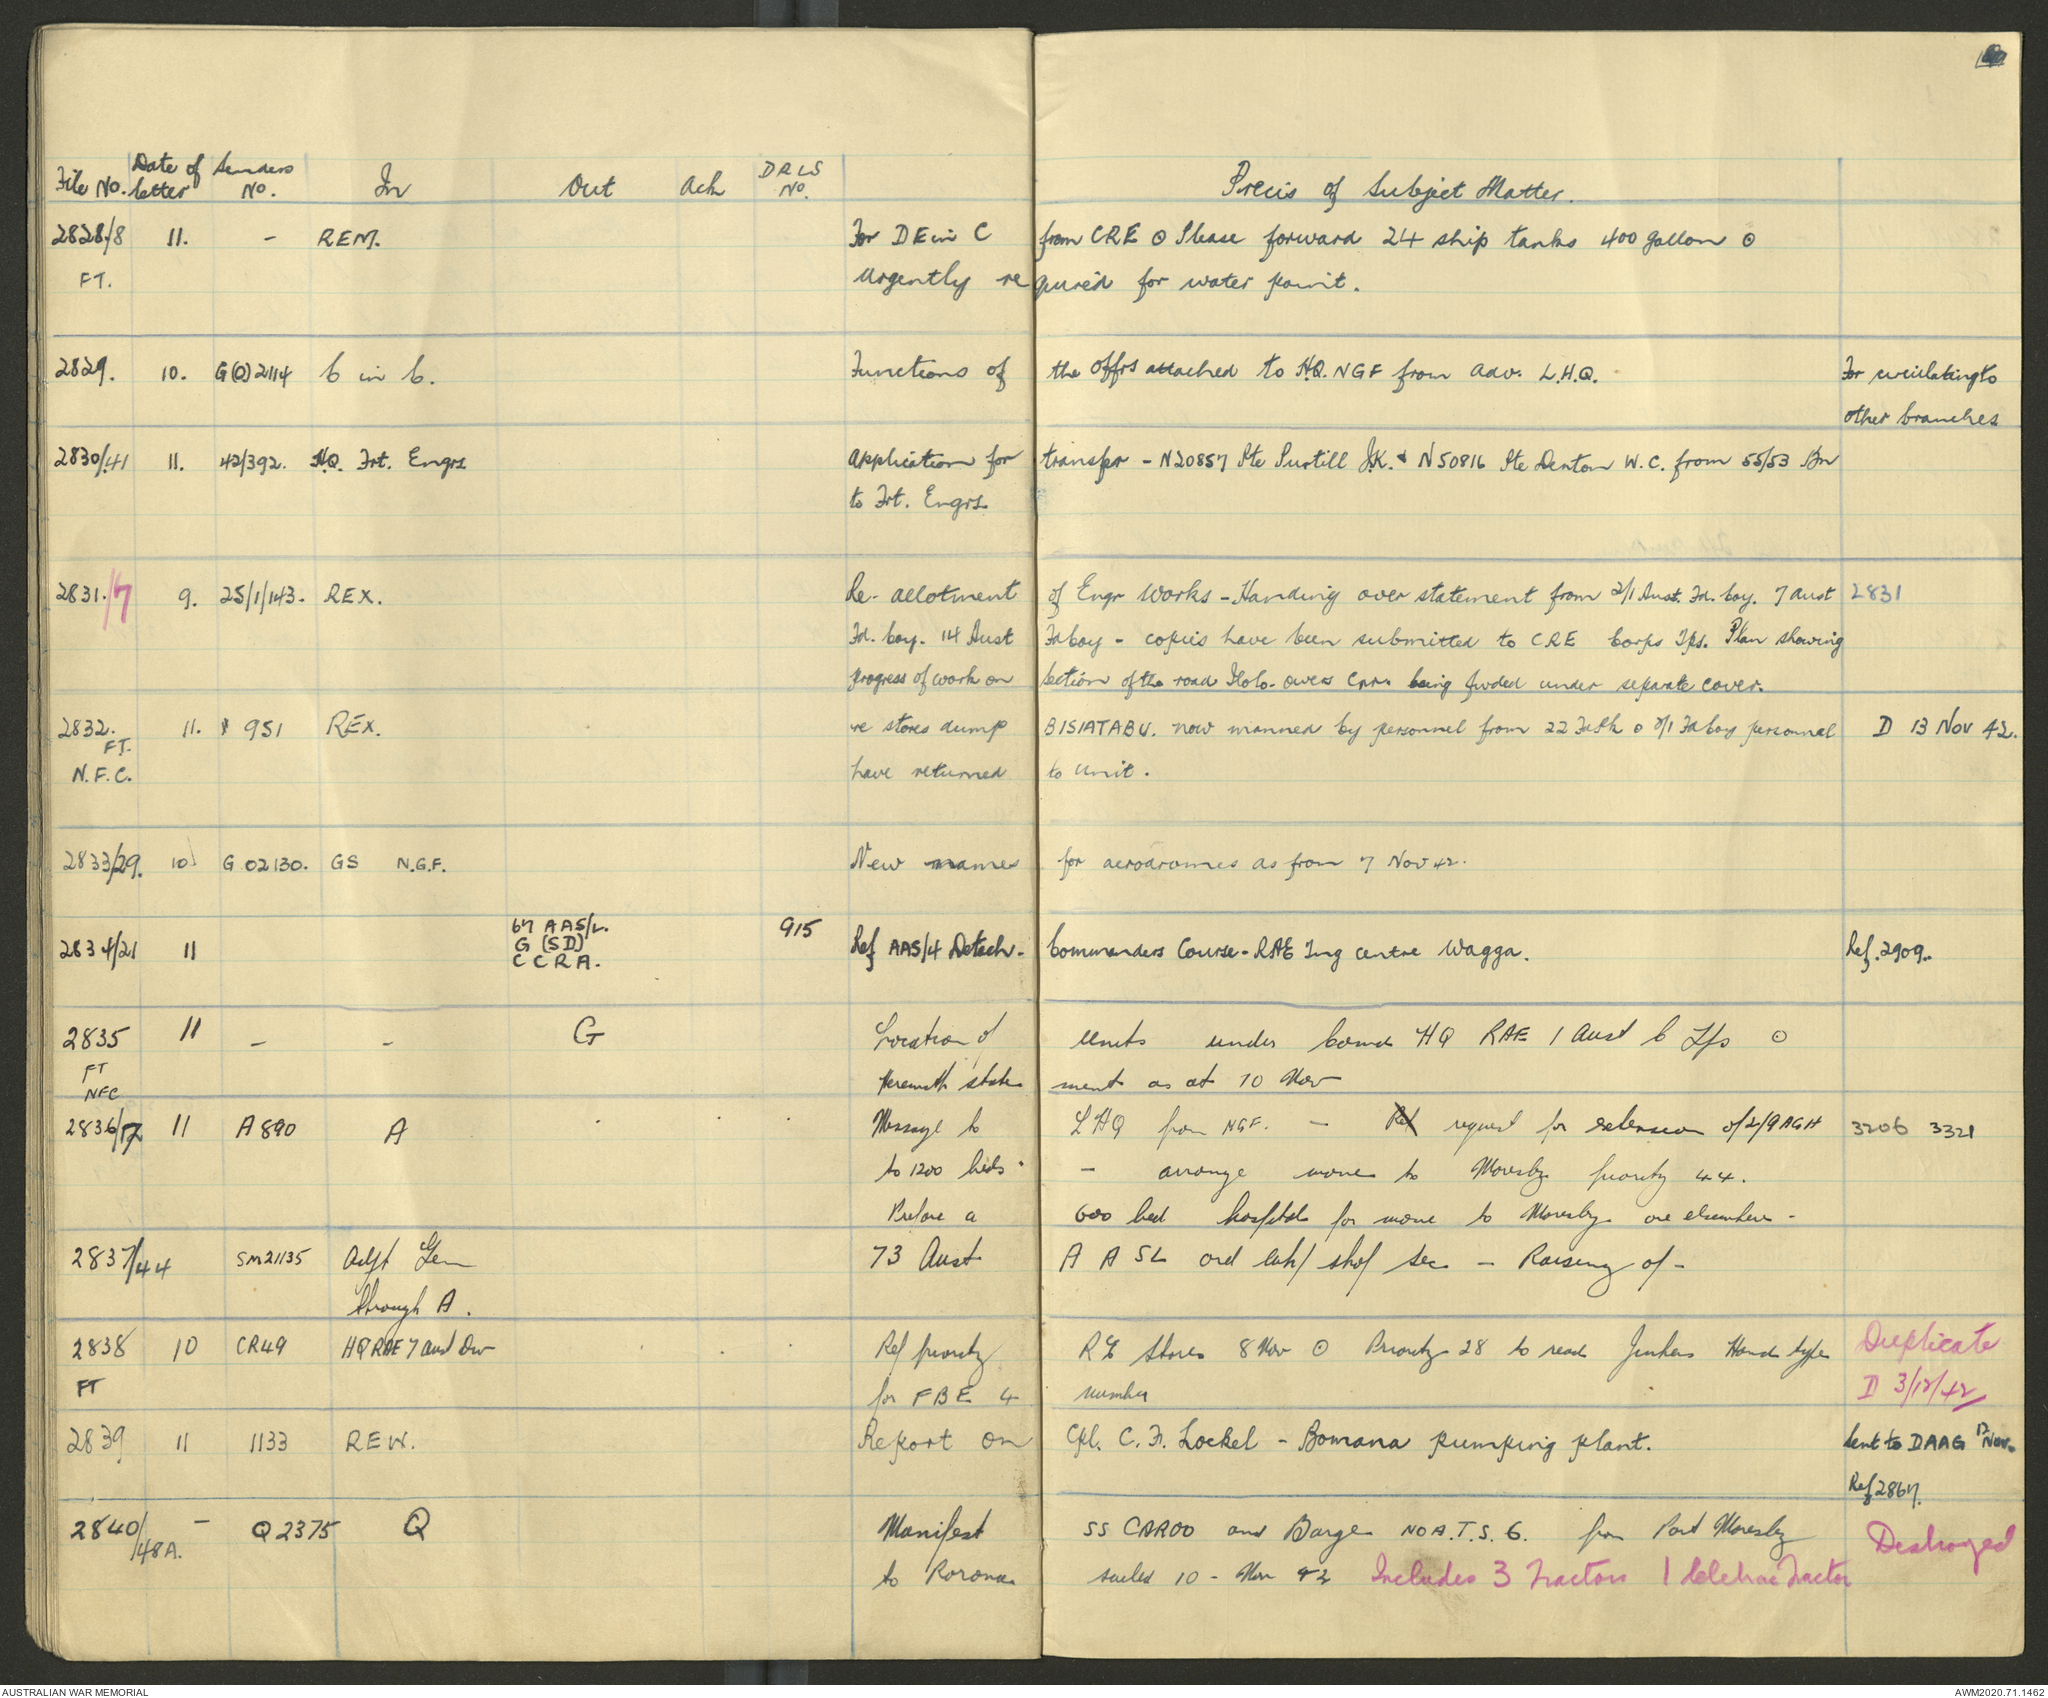 File No. Date of letter Senders No. In Out Ack DRLS No. Precis of Subject Matter.
2828/8 11. - REM. For DE in C from CRE ⊙ Please forward 24 ship tanks 400 gallon ⊙
FT. Urgently required for water point.
2829. 10. G(O)2114 C in C. Functions of the offrs attached to HQ. NGF from Adv. L.H.Q. For circulating to
other branches
2830/41 11. 42/392. HQ. Frt. Engrs Application for transfer - N20857 Pte Purtill J.K. & N50816 Pte Denton W.C. from 55/53 Bn
to Frt. Engrs.
2831/7 9. 25/1/143. REX. Re-allotment of Engr Works - Handing over statement from 2/1 Aust. Fd. Coy. 7 Aust 2831
Fd. Coy. 14 Aust Fd Coy - copies have been submitted to CRE Corps Tps. Plan showing
progress of work on section of the road Ilolo - Owers Cnr. being fwded under separate cover.
2832. 11. 951 REX. re stores dump BISIATABU. now manned by personnel from 22 Fd Pk ⊙ 2/1 Fd Coy personnel D 13 Nov 42.
FT.
N.F.C. have returned to unit.
2833/29. 10 G 02130. GS N.G.F. New names for aerodromes as from 7 Nov 42.
2834/21 11 67 AAS/L. G (SD) CCRA. 915 Ref AAS/4 Detach- Commanders Course - RAE Tng centre Wagga. Ref. 2909.
2835 11 - - G Location of units under Comd HQ RAE 1 Aust C Tps ⊙
FT
NFC Herewith statement as at 10 Nov
2836/17 11 A 890 A Message to LHQ from NGF. - request for extension of 2/9 AGH 3206 3321
to 1200 beds - arrange move to Moresby priority 44.
Prepare a 600 bed hospital for move to Moresby or elsewhere -
2837/44 SM21135 Adjt Gen 73 Aust A A SL ord sec - Raising of -
through A.
2838 10 CR49 HQ RAE 7 Aust Div Ref priority RE Stores 8 Nov ⊙ Priority 28 to read Hand type Duplicate
FT for FBE 4 number D 3/12/42
2839 11 1133 REW. Report on Cpl. C. F. Lockel - Bomana pumping plant. Sent to DAAG 13 Nov.
Ref 2867.
2840/48A. - Q 2375 Q Manifest SS CAROO and Barge NO A.T.S. 6. from Port Moresby Destroyed
to Rorona sailed 10 - Nov 42 Includes 3 Tractors 1 Cletrac Tractor
AUSTRALIAN WAR MEMORIAL AWM2020.71.1462